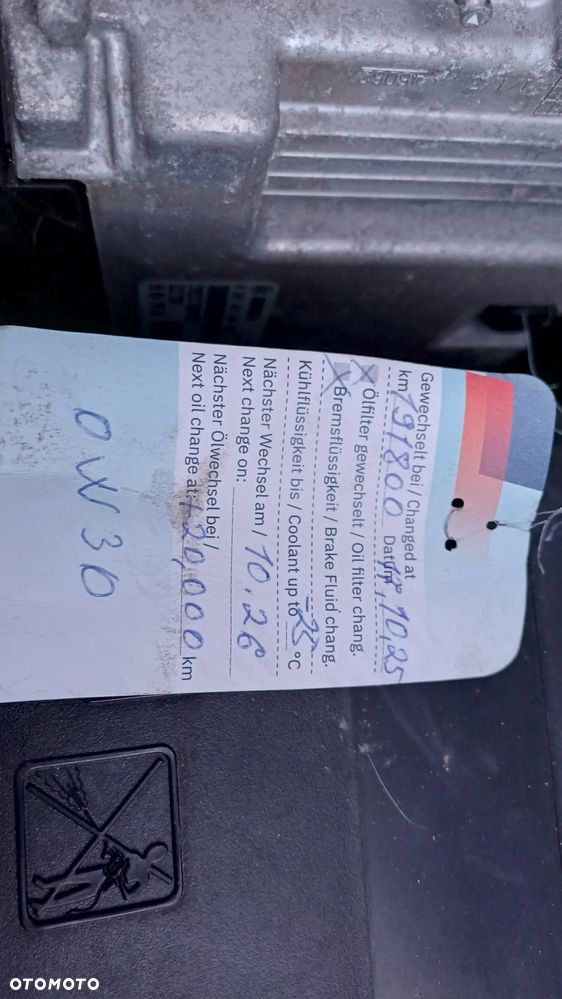 Gewechselt bei / Changed at
km 191800 Datum 17.10.25
X Ölfilter gewechselt / Oil filter chang.
X Bremsflüssigkeit / Brake Fluid chang.
Kühlflüssigkeit bis / Coolant up to -25 °C
Nächster Wechsel am /
Next change on: 10.26
Nächster Ölwechsel bei /
Next oil change at: +20,000 km
0W30
OTOMOTO